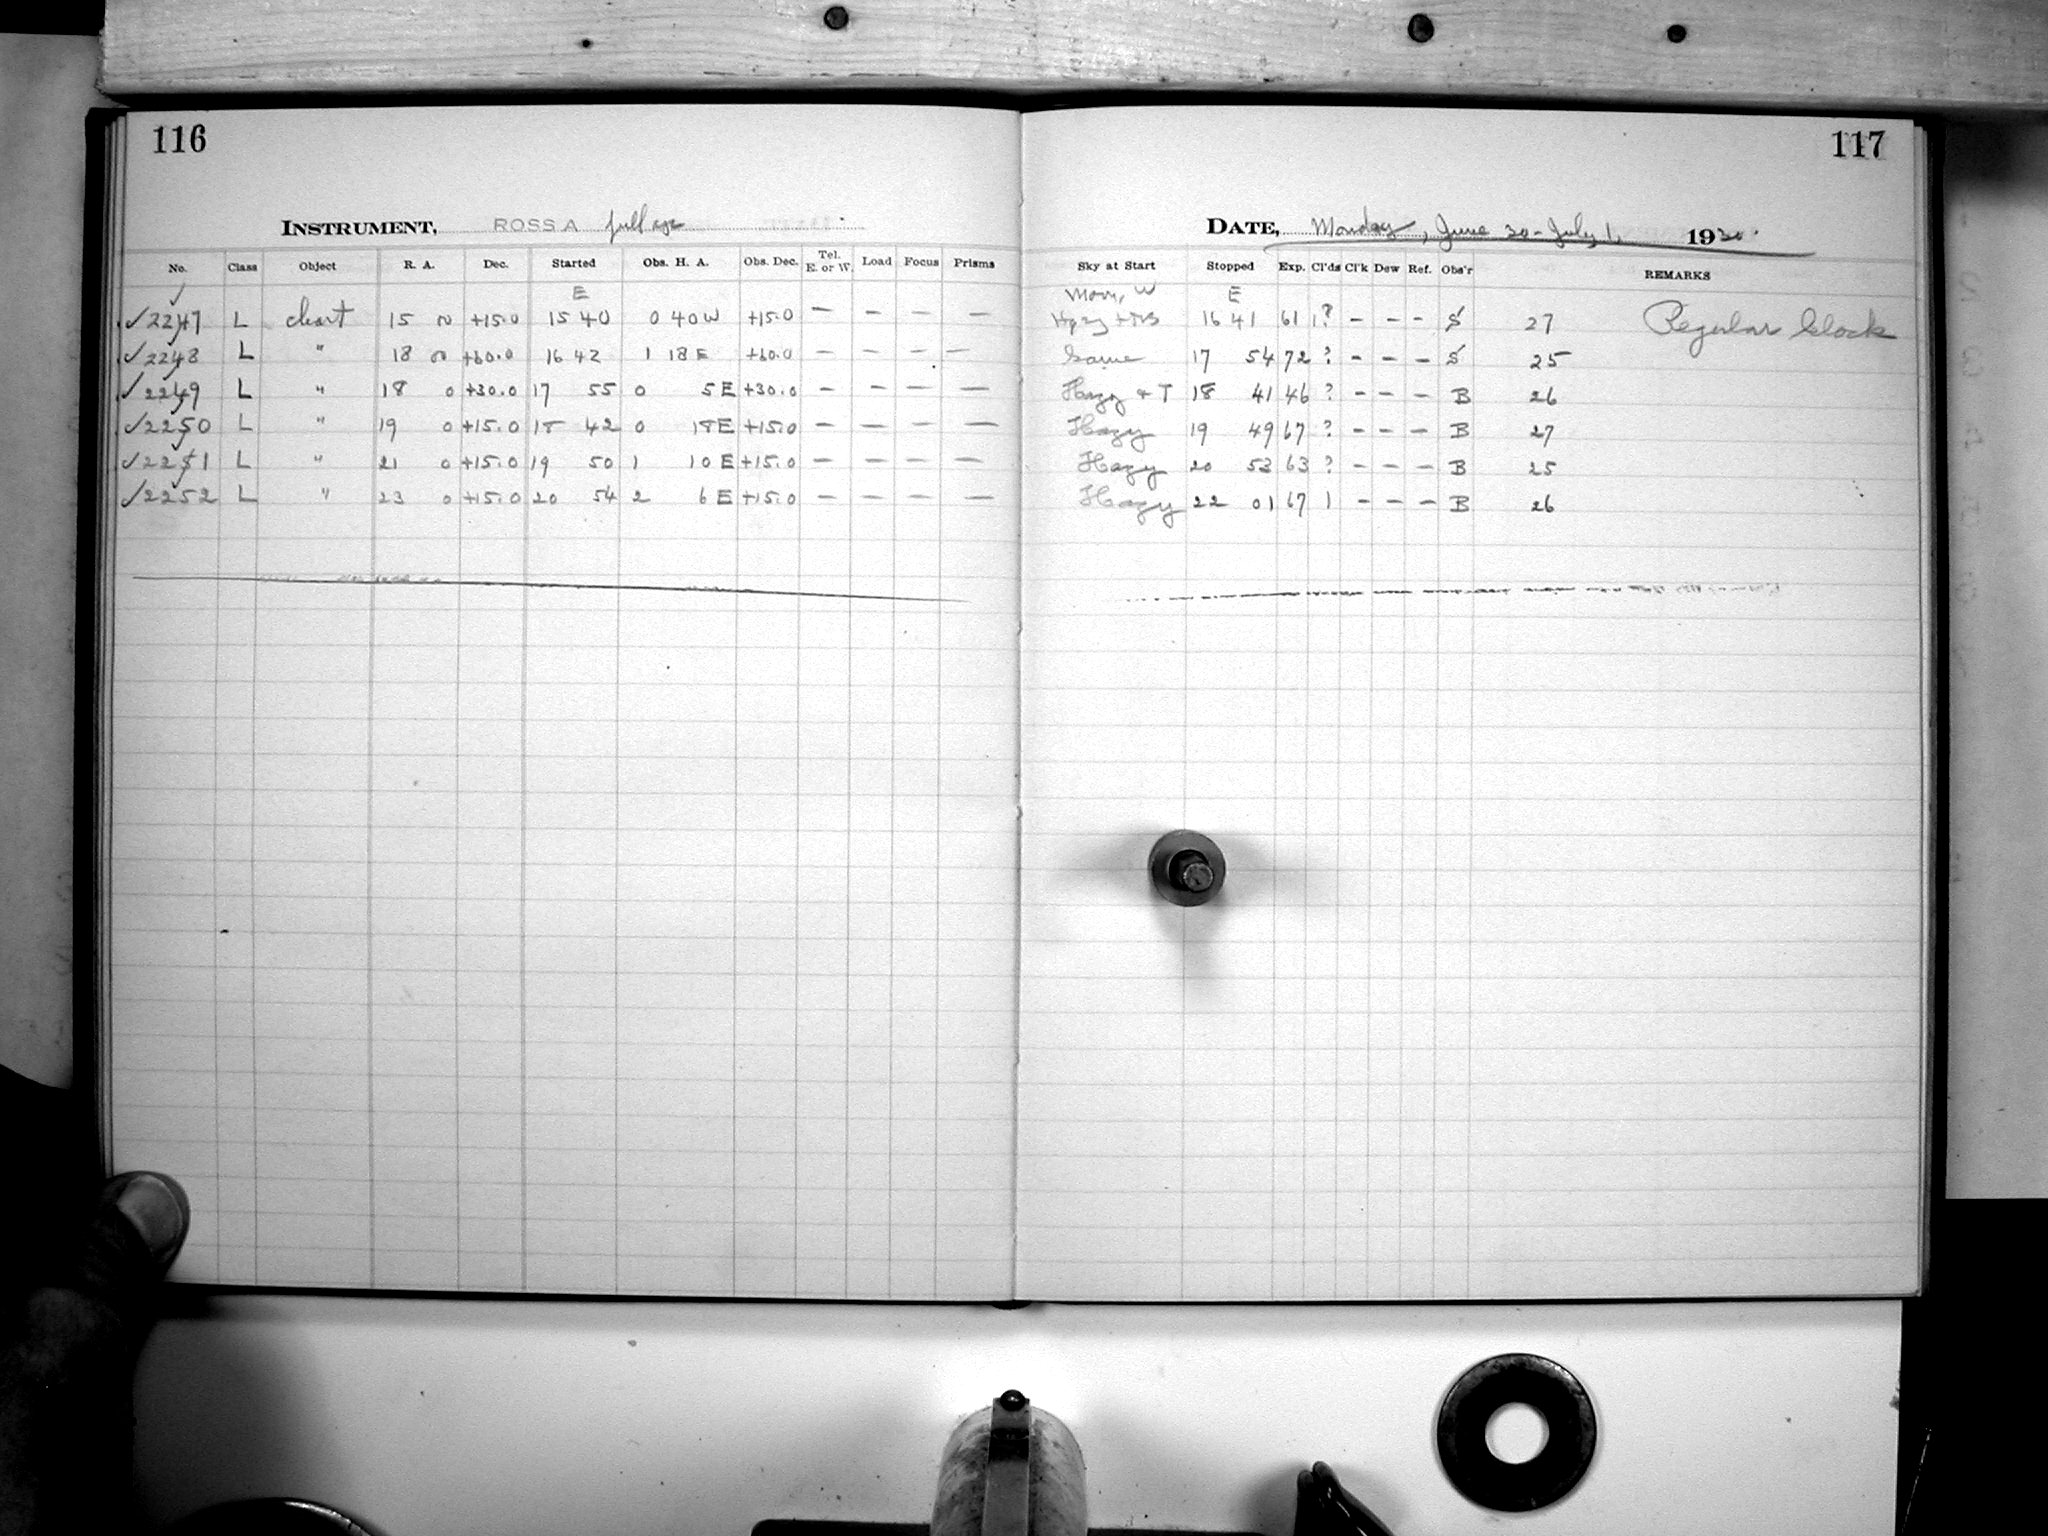 116
INSTRUMENT, ROSS A full ape
No. Class Object R. A. Dec. Started Obs. H. A. Obs. Dec. Tel. E. or W. Load Focus Prisms
E
✓2247 L chart 15 0 +15.0 15 40 0 40 W +15.0 — — — —
✓2248 L " 18 0 +60.0 16 42 1 18 E +60.0 — — — —
✓2249 L " 18 0 +30.0 17 55 0 5 E +30.0 — — — —
✓2250 L " 19 0 +15.0 18 42 0 18 E +15.0 — — — —
✓2251 L " 21 0 +15.0 19 50 1 10 E +15.0 — — — —
✓2252 L " 23 0 +15.0 20 54 2 6 E +15.0 — — — —
117
DATE, Monday, June 30 - July 1, 1930.
Sky at Start Stopped Exp. Cl'ds Cl'k Dew Ref. Obs'r REMARKS
Moon, W E
16 41 61 1? – – – S 27 Regular Clock
Same 17 54 72 ? – – – S 25
Hazy + T 18 41 46 ? – – – B 26
Hazy 19 49 67 ? – – – B 27
Hazy 20 53 63 ? – – – B 25
Hazy 22 01 67 1 – – – B 26